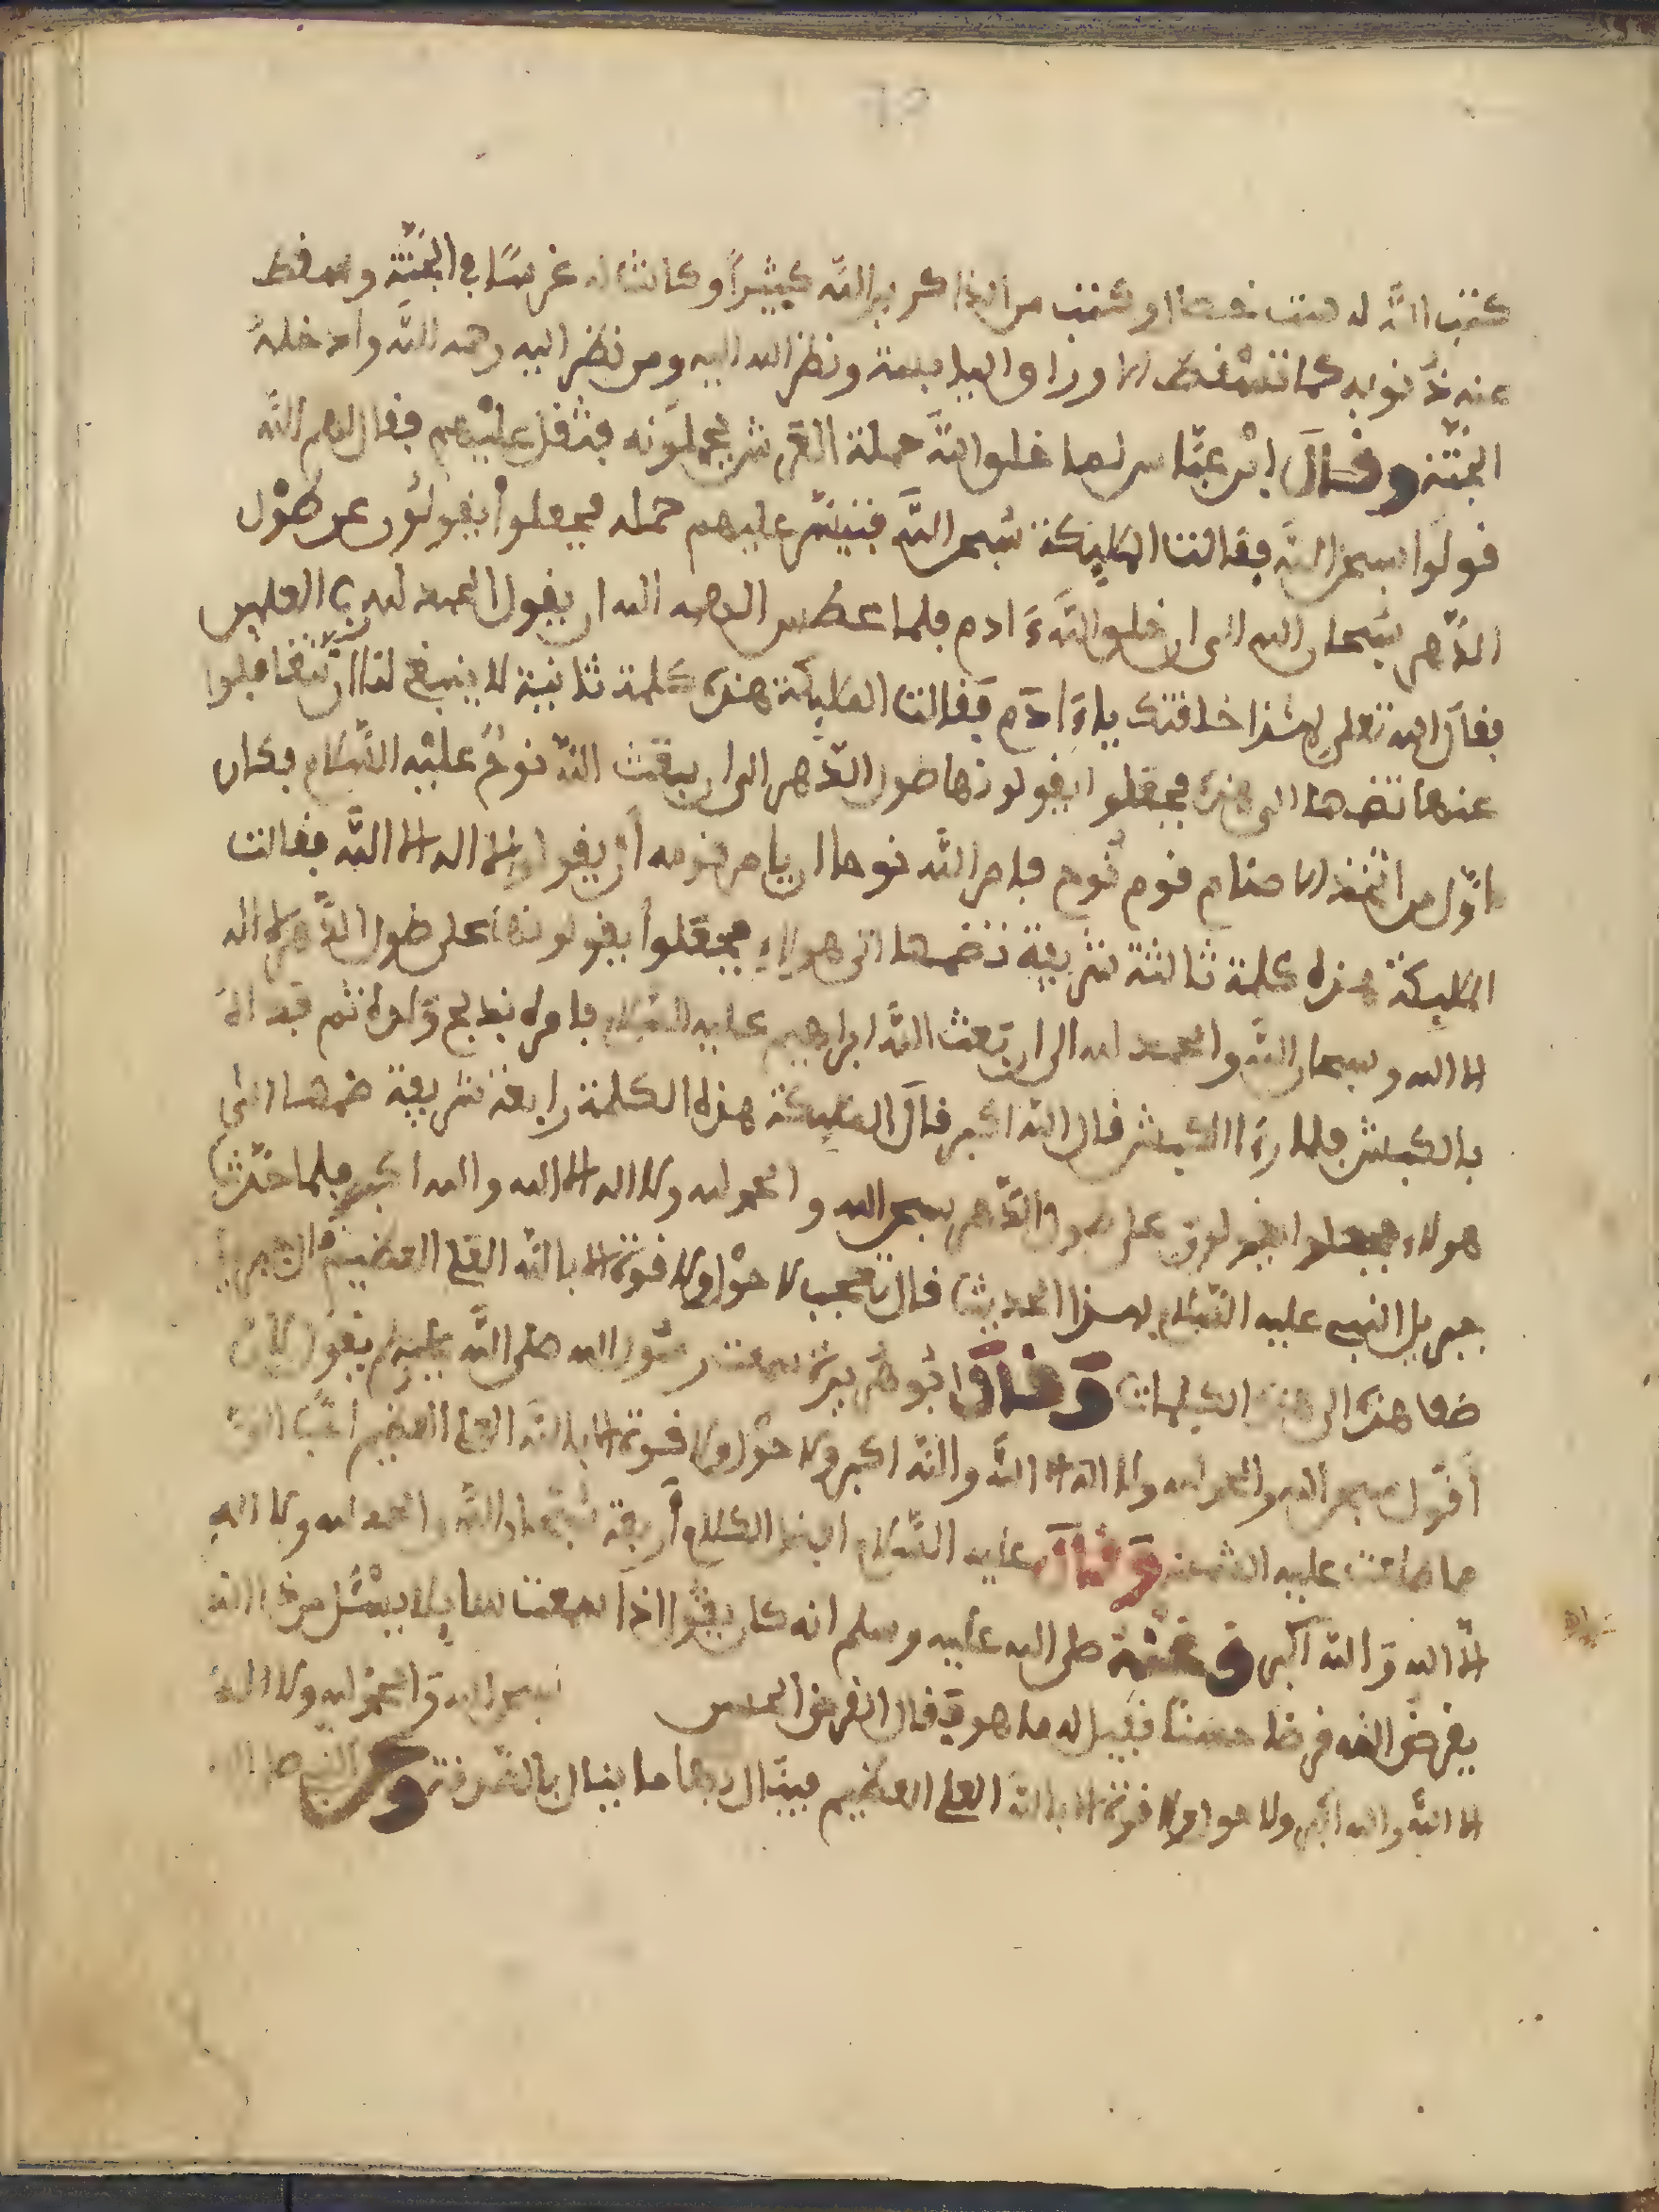 كتب الله له ست خصال وكتب من الذاكرين الله كثيرا وكانت له غرسا في الجنة وسقط
عنه ذنوبه كما تسقط الاوراق اليابسة ونظر الله اليه ومن نظر اليه رحمه الله وادخله
الجنة وقال ابن عباس لما خلق الله حملة العرش يحملونه فثقل عليهم فقال لهم الله
قولوا سبحن الله فقالت المليكة سبحن الله فتيسر عليهم حمله فجعلوا يقولون عن طول
الدهر سبحان الله الى ان خلق الله ءادم فلما عطس الهمه الله ان يقول الحمد لله رب العلمين
فقال الله تعلى لهذا خلقتك يا ءادم فقالت المليكة هذه كلمة ثانية لا ينبغي لنا ان نتغافلوا
عنها نضمها الى هذه فجعلوا يقولونها طول الدهر الى ان بعث الله نوح عليه السلام فكان
اول من اتخذ الاصنام قوم نوح فامر الله نوحا ان يامر قومه ان يقولوا لا اله الا الله فقالت
المليكة هذه كلمة ثالثة شريفة نضمها الى هولاء فجعلوا يقولونها على طول الدهر لا اله
الا الله وسبحان الله والحمد لله الى ان بعث الله ابراهيم عليه السلام فامره بذبح ولده ثم فداه
بالكبش فلما رءا الكبش قال الله اكبر قال المليكة هذه الكلمة رابعة شريفة ضمها الى
هولاء فجعلوا يقولون على طول الدهر سبحن الله والحمد لله ولا اله الا الله والله اكبر فلما حدث
جبريل النبي عليه السلام بهذا الحديث قال تعجب لا حول ولا قوة الا بالله العلي العظيم قال جبريل
ضفا هذه الى هذه الكلمات وقال ابو هريرة سمعت رسول الله صلى الله عليه وسلم يقول لان
اقول سبحن الله والحمد لله ولا اله الا الله والله اكبر ولا حول ولا قوة الا بالله العلي العظيم احب الي
ما طلعت عليه الشمس وقال عليه السلام افضل الكلام اربعة سبحان الله والحمد لله ولا اله
الا الله والله اكبر وعنه صلى الله عليه وسلم انه كان يقول اذا سمعت سايلا يسئل من ذا الذي
يقرض الله قرضا حسنا فقيل له ما هو فقال القرض الحسن سبحن الله والحمد لله ولا اله
الا الله والله اكبر ولا حول ولا قوة الا بالله العلي العظيم فينال بها ما ينال بالصدقة وعن النبي صلى الله